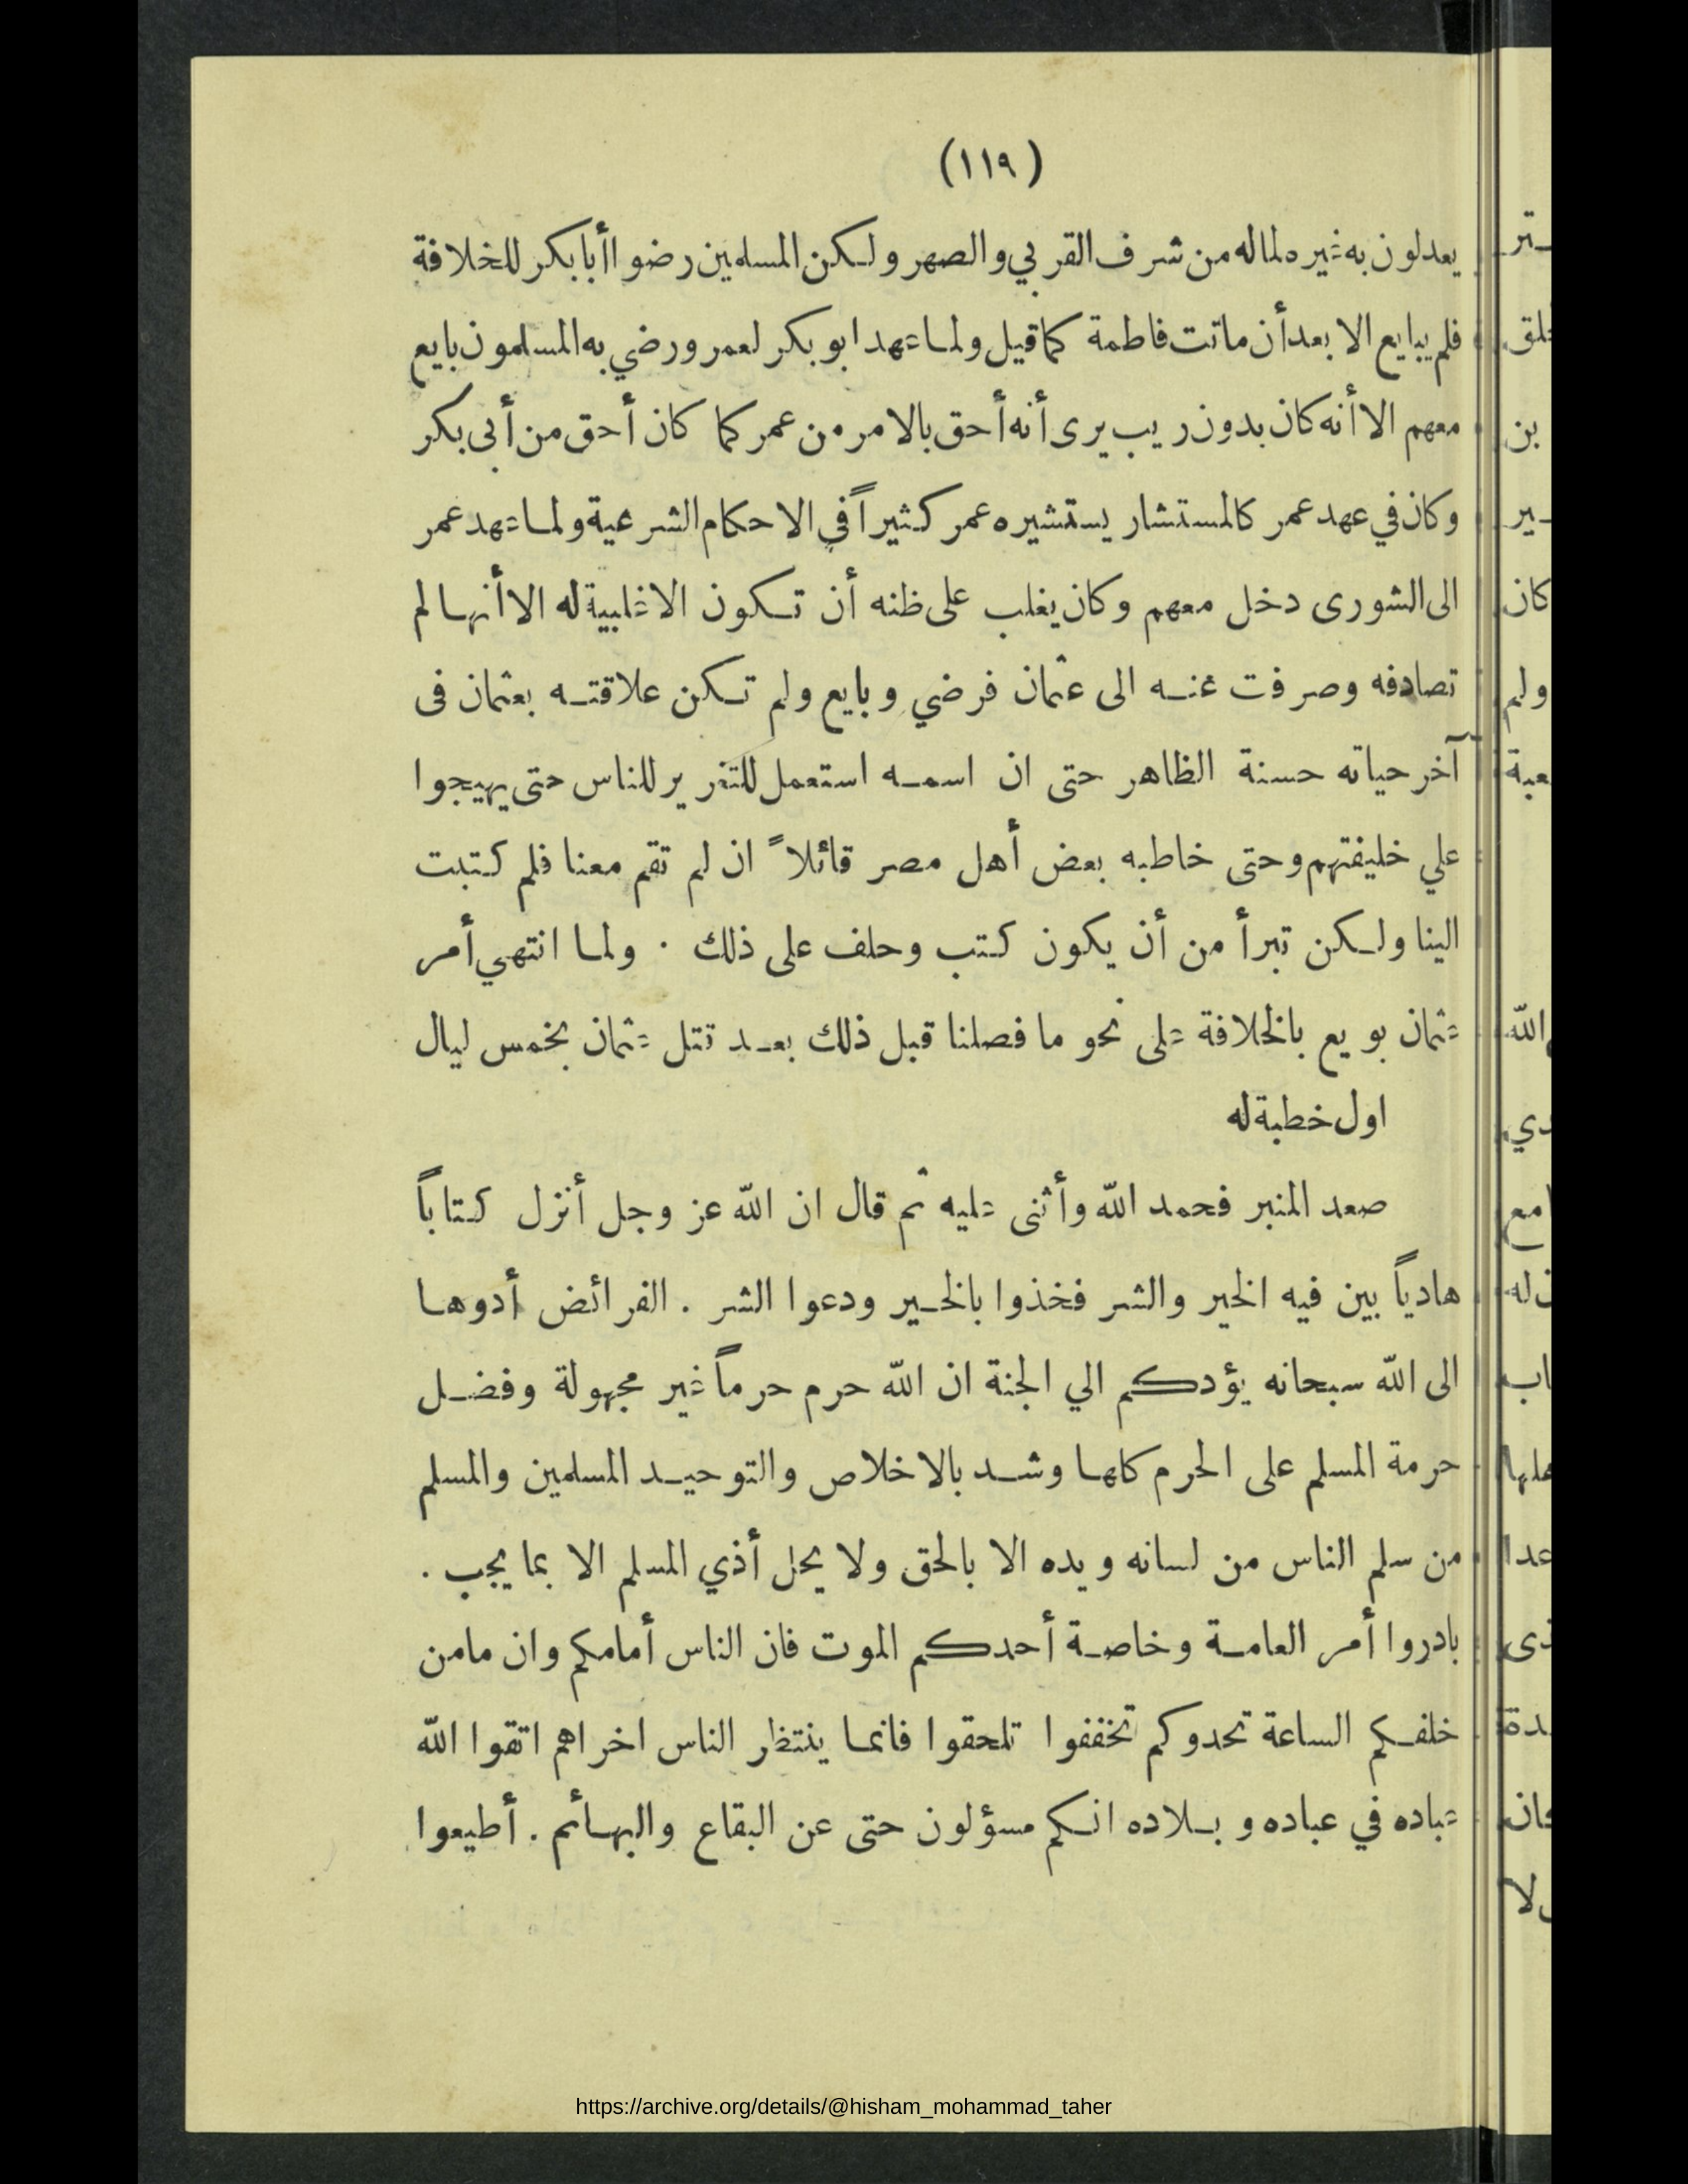 (١١٩)
يعدلون به غيره لما له من شرف القربي والصهر ولكن المسلمين رضوا أبا بكر للخلافة
فلم يبايع الا بعد أن ماتت فاطمة كما قيل ولما عهد ابو بكر لعمر ورضي به المسلمون بايع
معهم الا أنه كان بدون ريب يرى أنه أحق بالامر من عمر كما كان أحق من أبى بكر
وكان في عهد عمر كالمستشار يستشيره عمر كثيراً في الاحكام الشرعية ولما عهد عمر
الى الشورى دخل معهم وكان يغلب على ظنه أن تكون الاغلبية له الا أنها لم
تصادفه وصرفت عنه الى عثمان فرضي وبايع ولم تكن علاقته بعثمان فى
آخر حياته حسنة الظاهر حتى ان اسمه استعمل للتغرير للناس حتى يهيجوا
علي خليفتهم وحتى خاطبه بعض أهل مصر قائلاً ان لم تقم معنا فلم كتبت
الينا ولكن تبرأ من أن يكون كتب وحلف على ذلك . ولما انتهي أمر
عثمان بويع بالخلافة على نحو ما فصلنا قبل ذلك بعد قتل عثمان بخمس ليال
اول خطبة له
صعد المنبر فحمد الله وأثنى عليه ثم قال ان الله عز وجل أنزل كتاباً
هادياً بين فيه الخير والشر فخذوا بالخير ودعوا الشر . الفرائض أدوها
الى الله سبحانه يؤدكم الي الجنة ان الله حرم حرماً غير مجهولة وفضل
حرمة المسلم على الحرم كلها وشد بالاخلاص والتوحيد المسلمين والمسلم
من سلم الناس من لسانه ويده الا بالحق ولا يحل أذي المسلم الا بما يجب .
بادروا أمر العامة وخاصة أحدكم الموت فان الناس أمامكم وان ما من
خلفكم الساعة تحدوكم تخففوا تلحقوا فانما ينتظر الناس اخراهم اتقوا الله
عباده في عباده وبلاده انكم مسؤلون حتى عن البقاع والبهائم . أطيعوا
https://archive.org/details/@hisham_mohammad_taher